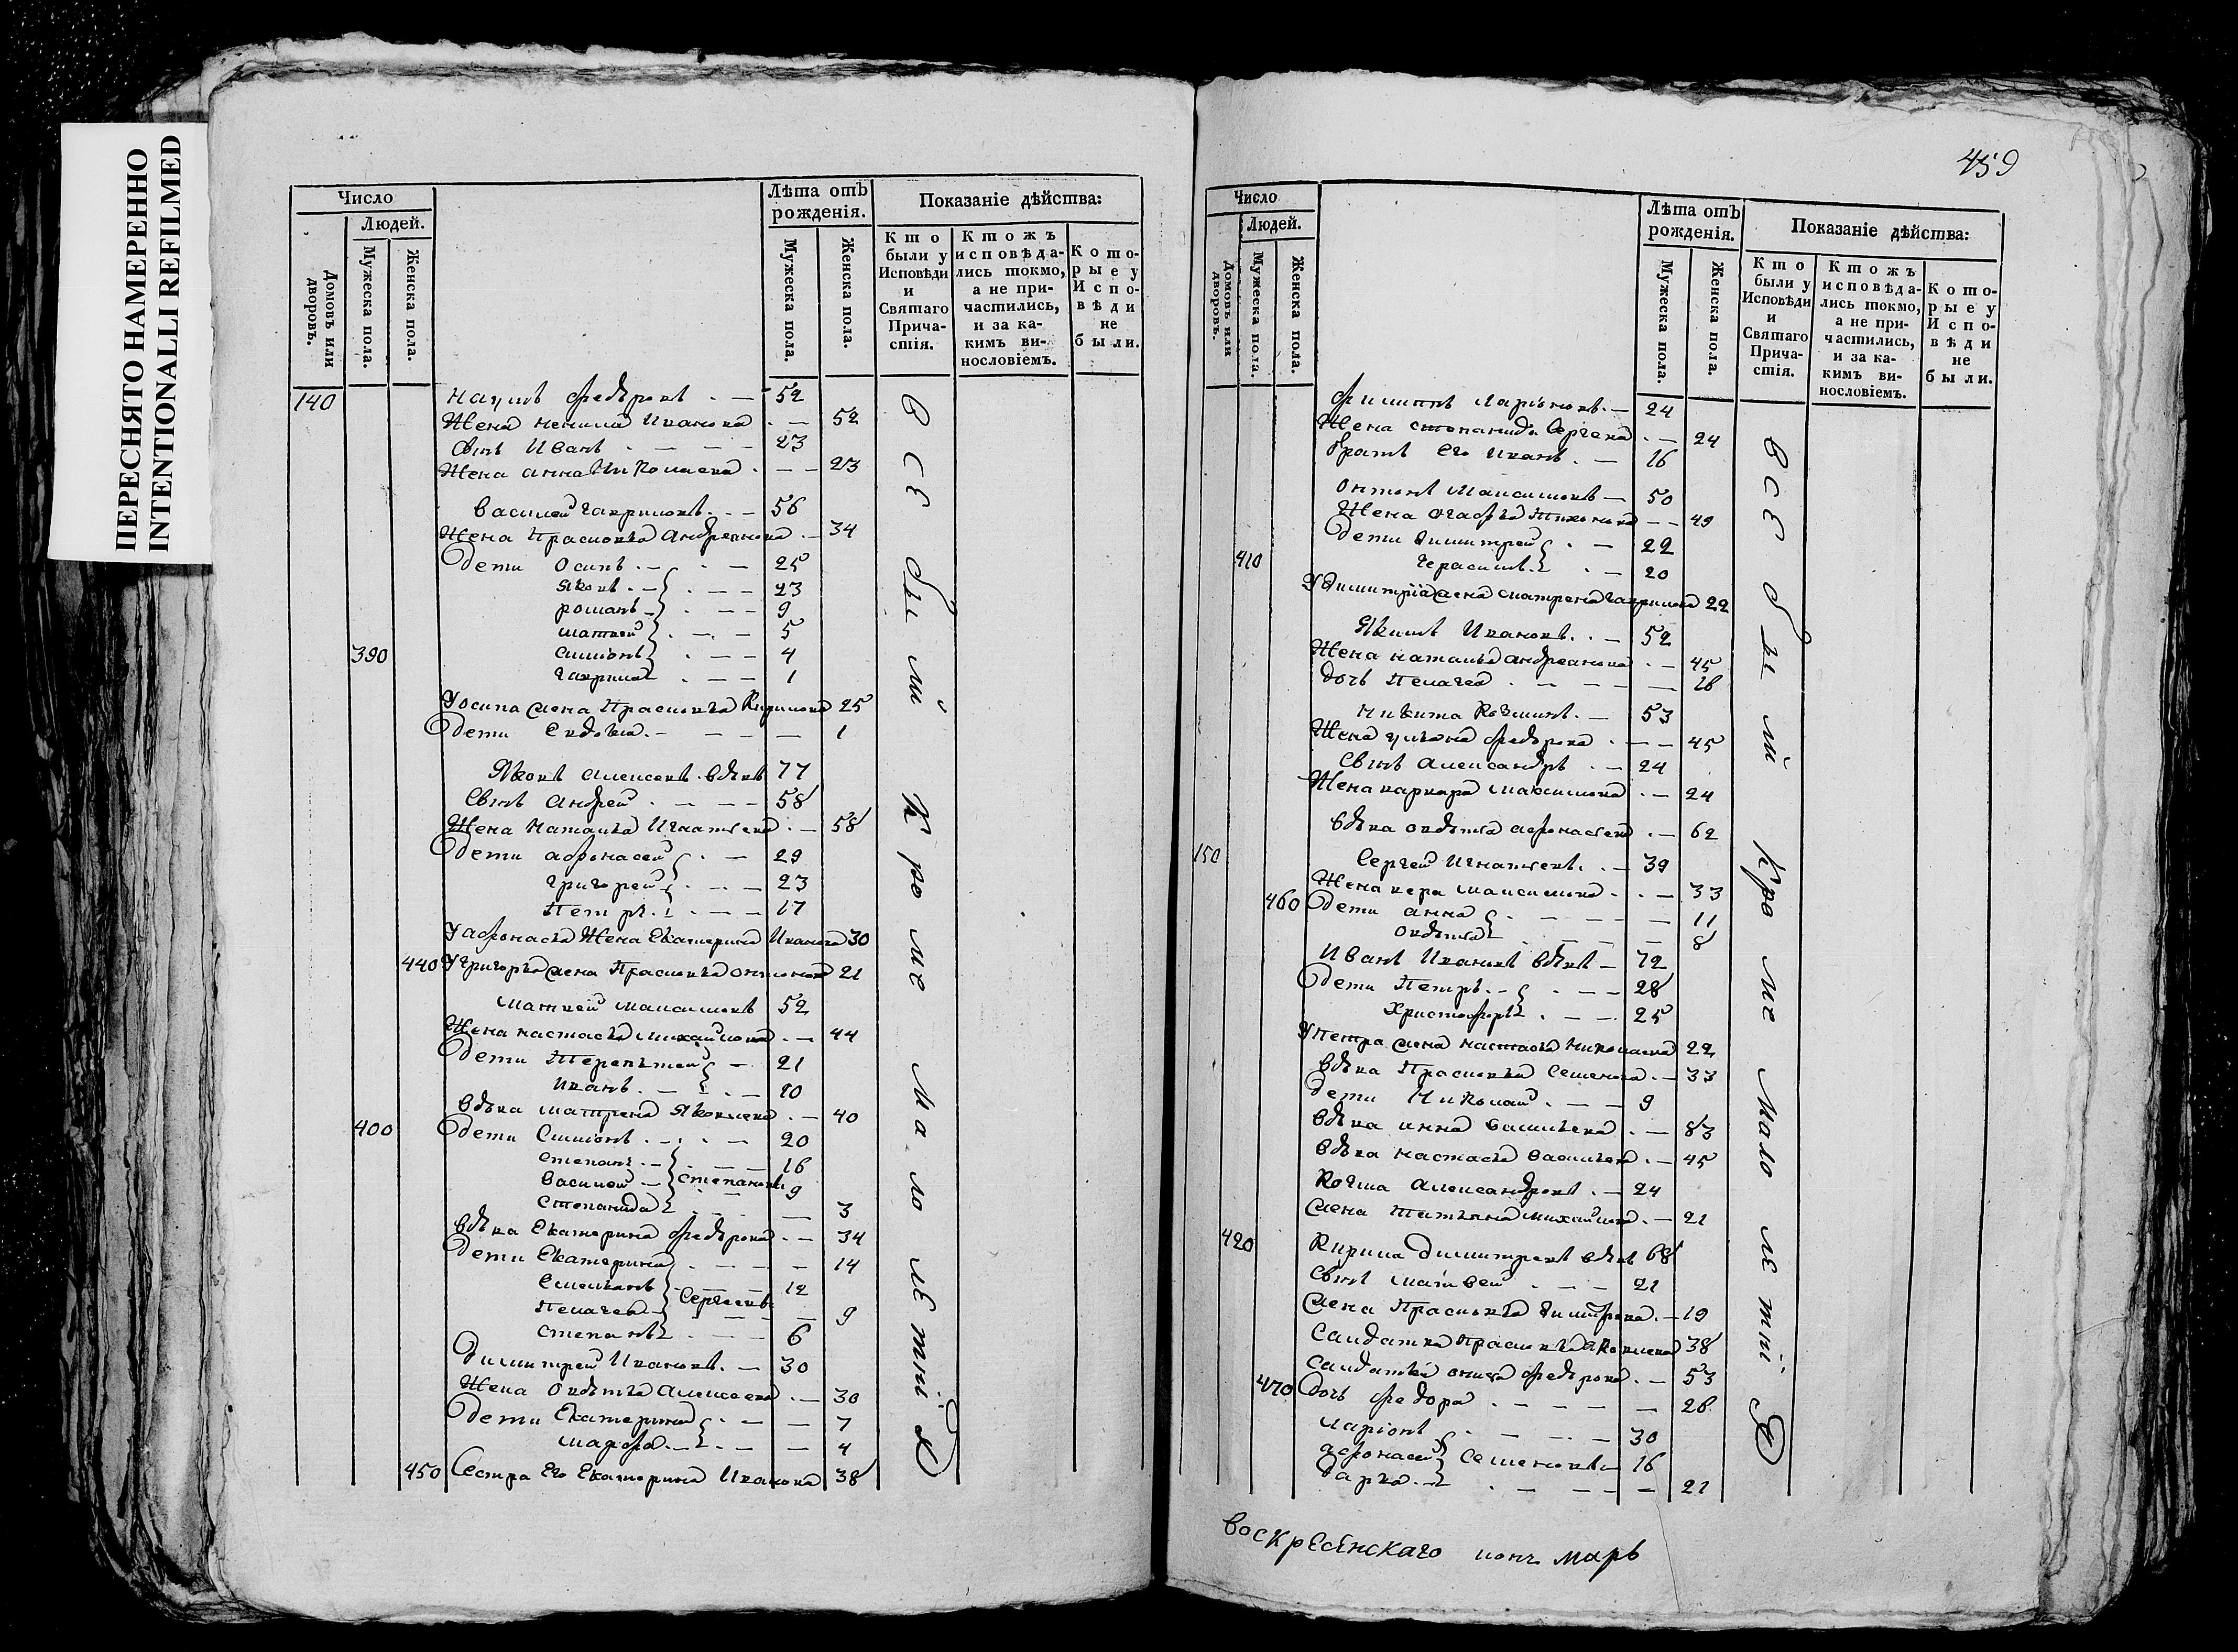 ПЕРЕСНЯТО НАМЕРЕННО
INTENTIONALLI REFILMED
Число
Людей.
Домовъ или дворовъ.
Мужеска пола.
Женска пола.
Лѣта отъ рожденія.
Мужеска пола.
Женска пола.
Показаніе дѣйства:
Кто были у Исповѣди и Святаго Причастія.
Ктожъ исповѣдались токмо, а не причастились, и за какимъ винословіемъ.
Которые у Исповѣди не были.
Всѣ были Кроме Малолетнi
140 наумъ федоровъ 52
Жена ненила Иванова 52
Снъ Иванъ 23
Жена анна Николаева 23
василей гавриловъ 56
Жена Прасковья андреянова 34
Дети Осипъ 25
яковъ 23
романъ 9
матвей 5
390 симионъ 4
гаврила 1
У осипа жена Прасковья Кирилова 25
Дети Евдокия 1
Яковъ алексеевъ вдвъ 77
Снъ андрей 58
Жена Наталья Игнатьева 58
Дети афонасей 29
григорей 23
Петръ 17
У афонасья Жена Екатерина Иванова 30
440 У григорья жена Прасковья онтонова 21
матвей максимовъ 52
Жена настасья михайлова 44
Дети Терентей 21
Иванъ 20
вдва матрена Яковлева 40
400 Дети Симионъ 20
степанъ 16
василей степановы 9
степанида 3
вдва Екатерина федорова 34
Дети Екатерина 14
Емельянъ 12
Пелагея Сергеевы 9
степанъ 6
Димитрей Ивановъ 30
Жена овдотья алексеева 30
Дети Екатерина 7
марфа 4
450 Сестра Его Екатерина Иванова 38
459
Число
Людей.
Домовъ или дворовъ.
Мужеска пола.
Женска пола.
Лѣта отъ рожденія.
Мужеска пола.
Женска пола.
Показаніе дѣйства:
Кто были у Исповѣди и Святаго Причастія.
Ктожъ исповѣдались токмо, а не причастились, и за какимъ винословіемъ.
Которые у Исповѣди не были.
Всѣ были Кроме Малолетнi
филиппъ ларионовъ 24
Жена степанида Сергеева 24
братъ Его Иванъ 16
онтонъ Максимовъ 50
Жена агафья Тихонова 49
Дети Димитрей 22
410 герасимъ 20
У Димитрия жена матрена гаврилова 22
Якимъ Ивановъ 52
Жена наталья андреянова 45
дочь Пелагея 16
Никита Козминъ 53
Жена ульяна федорова 45
Снъ александръ 24
Жена варвара максимова 24
вдва овдотья афонасьева 62
150 Сергей Игнатьевъ 39
Жена вера максимова 33
460 Дети анна 11
овдотья 8
Иванъ Ивановъ вдвъ 72
Дети Петръ 28
Христофоръ 25
У Петра жена настасья Николаева 22
вдва Прасковья Семенова 33
Дети Николай 9
вдва анна васильева 83
вдва настасья васильева 45
Козма александровъ 24
жена Татьяна михайлова 21
420 Кирила димитреевъ вдвъ 68
Снъ матвей 21
жена Прасковья димитрева 19
Салдатка Прасковья яковлева 38
Салдатка федорова 53
470 Дочь федора 26
лариoнъ 30
афонасей Семеновы 16
дарья 21
воскресенскаго попъ марѣ